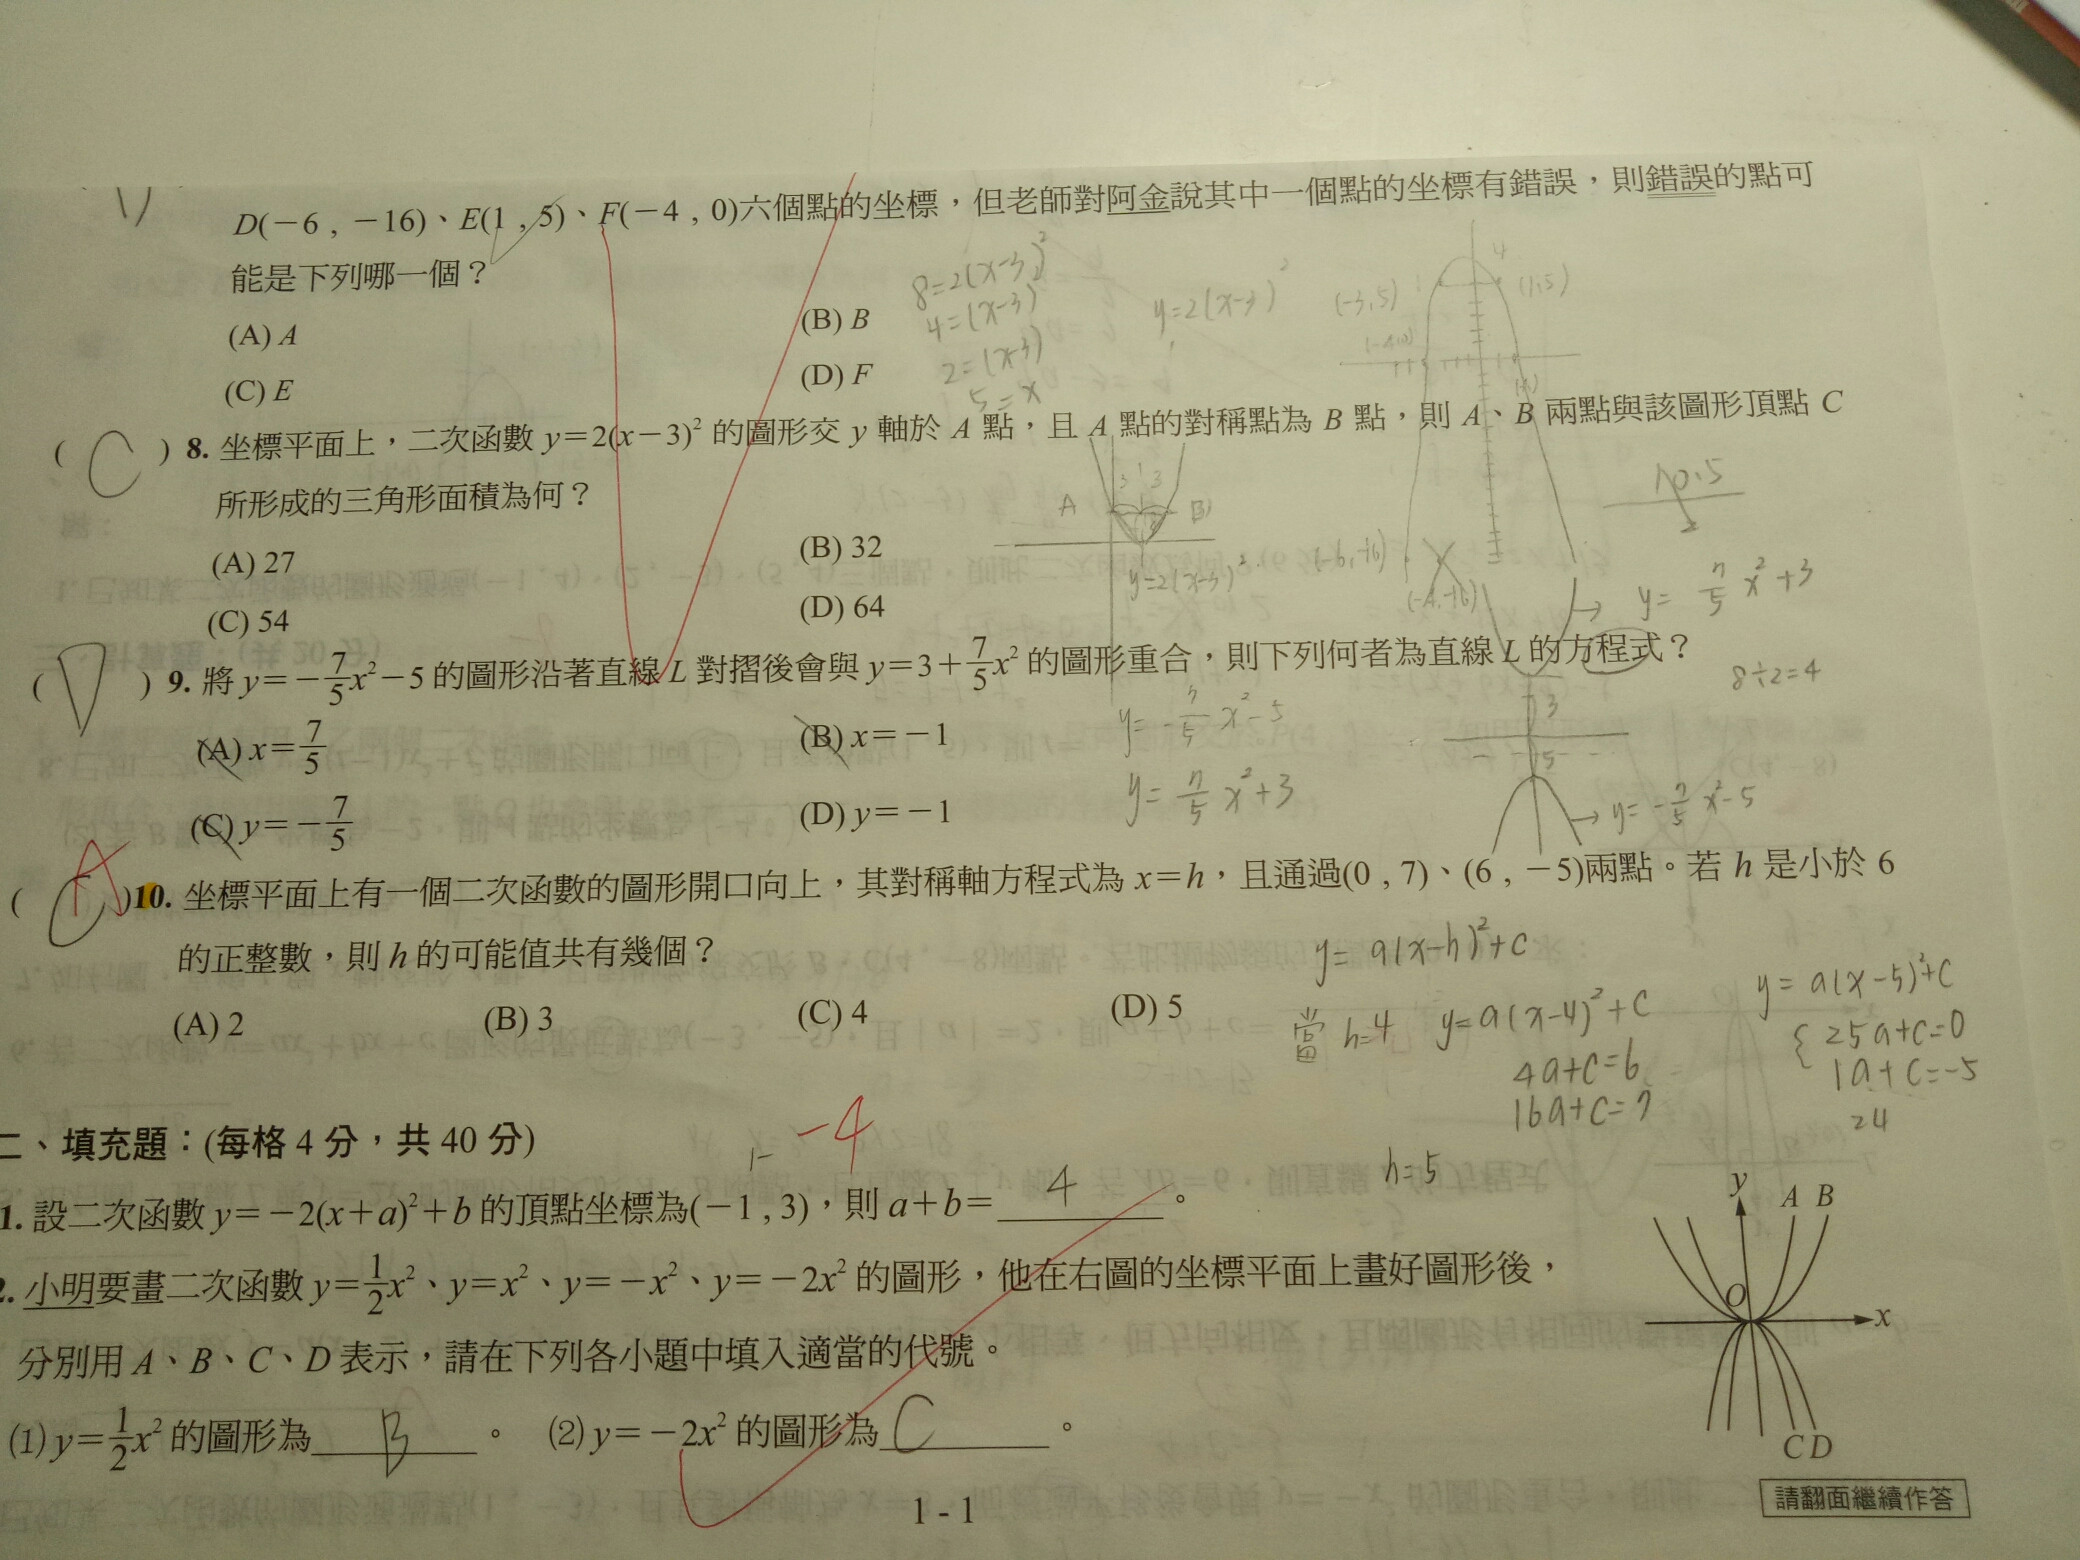 D(−6 , −16)、E(1 , 5)、F(−4 , 0)六個點的坐標，但老師對阿金說其中一個點的坐標有錯誤，則錯誤的點可
能是下列哪一個？
(A) A
(B) B
(C) E
(D) F
8=2(x-3)²
4=(x-3)
2=(x-3)
5=x
y=2(x-3)²
4
(-3,5)
(1,5)
( C ) 8. 坐標平面上，二次函數 y=2(x−3)² 的圖形交 y 軸於 A 點，且 A 點的對稱點為 B 點，則 A、B 兩點與該圖形頂點 C
所形成的三角形面積為何？
(A) 27
(B) 32
(C) 54
(D) 64
3 3
A B
y=2(x-3)²
(-6,-16)
(-4,-16)
y= 7/5 x²+3
( D ) 9. 將 y=−7/5x²−5 的圖形沿著直線 L 對摺後會與 y=3+7/5x² 的圖形重合，則下列何者為直線 L 的方程式？
8÷2=4
(A) x=7/5
(B) x=−1
(C) y=−7/5
(D) y=−1
y= -7/5 x²-5
y= 7/5 x²+3
3
5
y= -7/5 x²-5
( C A )10. 坐標平面上有一個二次函數的圖形開口向上，其對稱軸方程式為 x=h，且通過(0 , 7)、(6 , −5)兩點。若 h 是小於 6
的正整數，則 h 的可能值共有幾個？
(A) 2
(B) 3
(C) 4
(D) 5
y= a(x-h)²+c
當 h=4 y=a(x-4)²+c
4a+c=6
16a+c=7
h=5
y= a(x-5)²+c
{ 25a+c=0
1a+c=-5
24
二、填充題：(每格 4 分，共 40 分)
-4
1. 設二次函數 y=−2(x+a)²+b 的頂點坐標為(−1 , 3)，則 a+b= 4 。
2. 小明要畫二次函數 y=1/2x²、y=x²、y=−x²、y=−2x² 的圖形，他在右圖的坐標平面上畫好圖形後，
分別用 A、B、C、D 表示，請在下列各小題中填入適當的代號。
(1) y=1/2x² 的圖形為 B 。 (2) y=−2x² 的圖形為 C 。
y A B
O x
C D
1 - 1
請翻面繼續作答